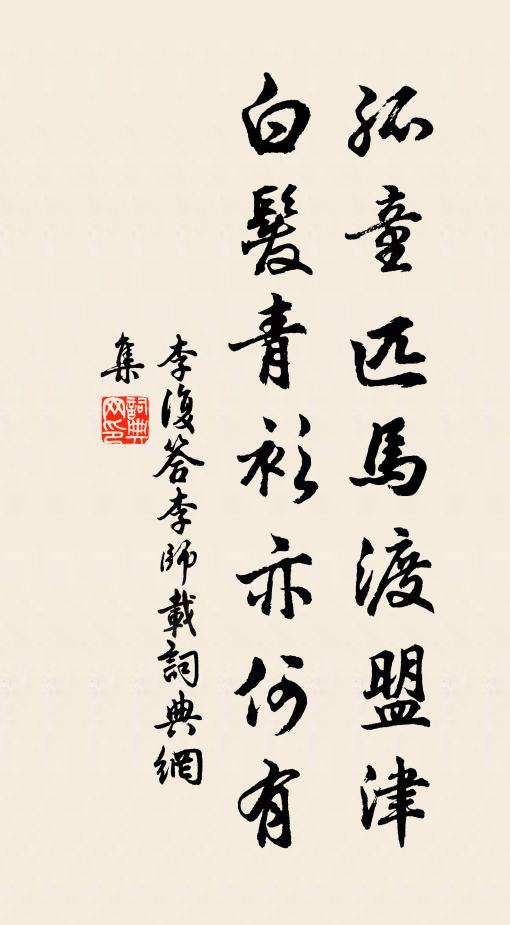 孤童匹馬渡盟津
白髮青衫亦何有
李復答李師載詞典網
集
詞典
网印